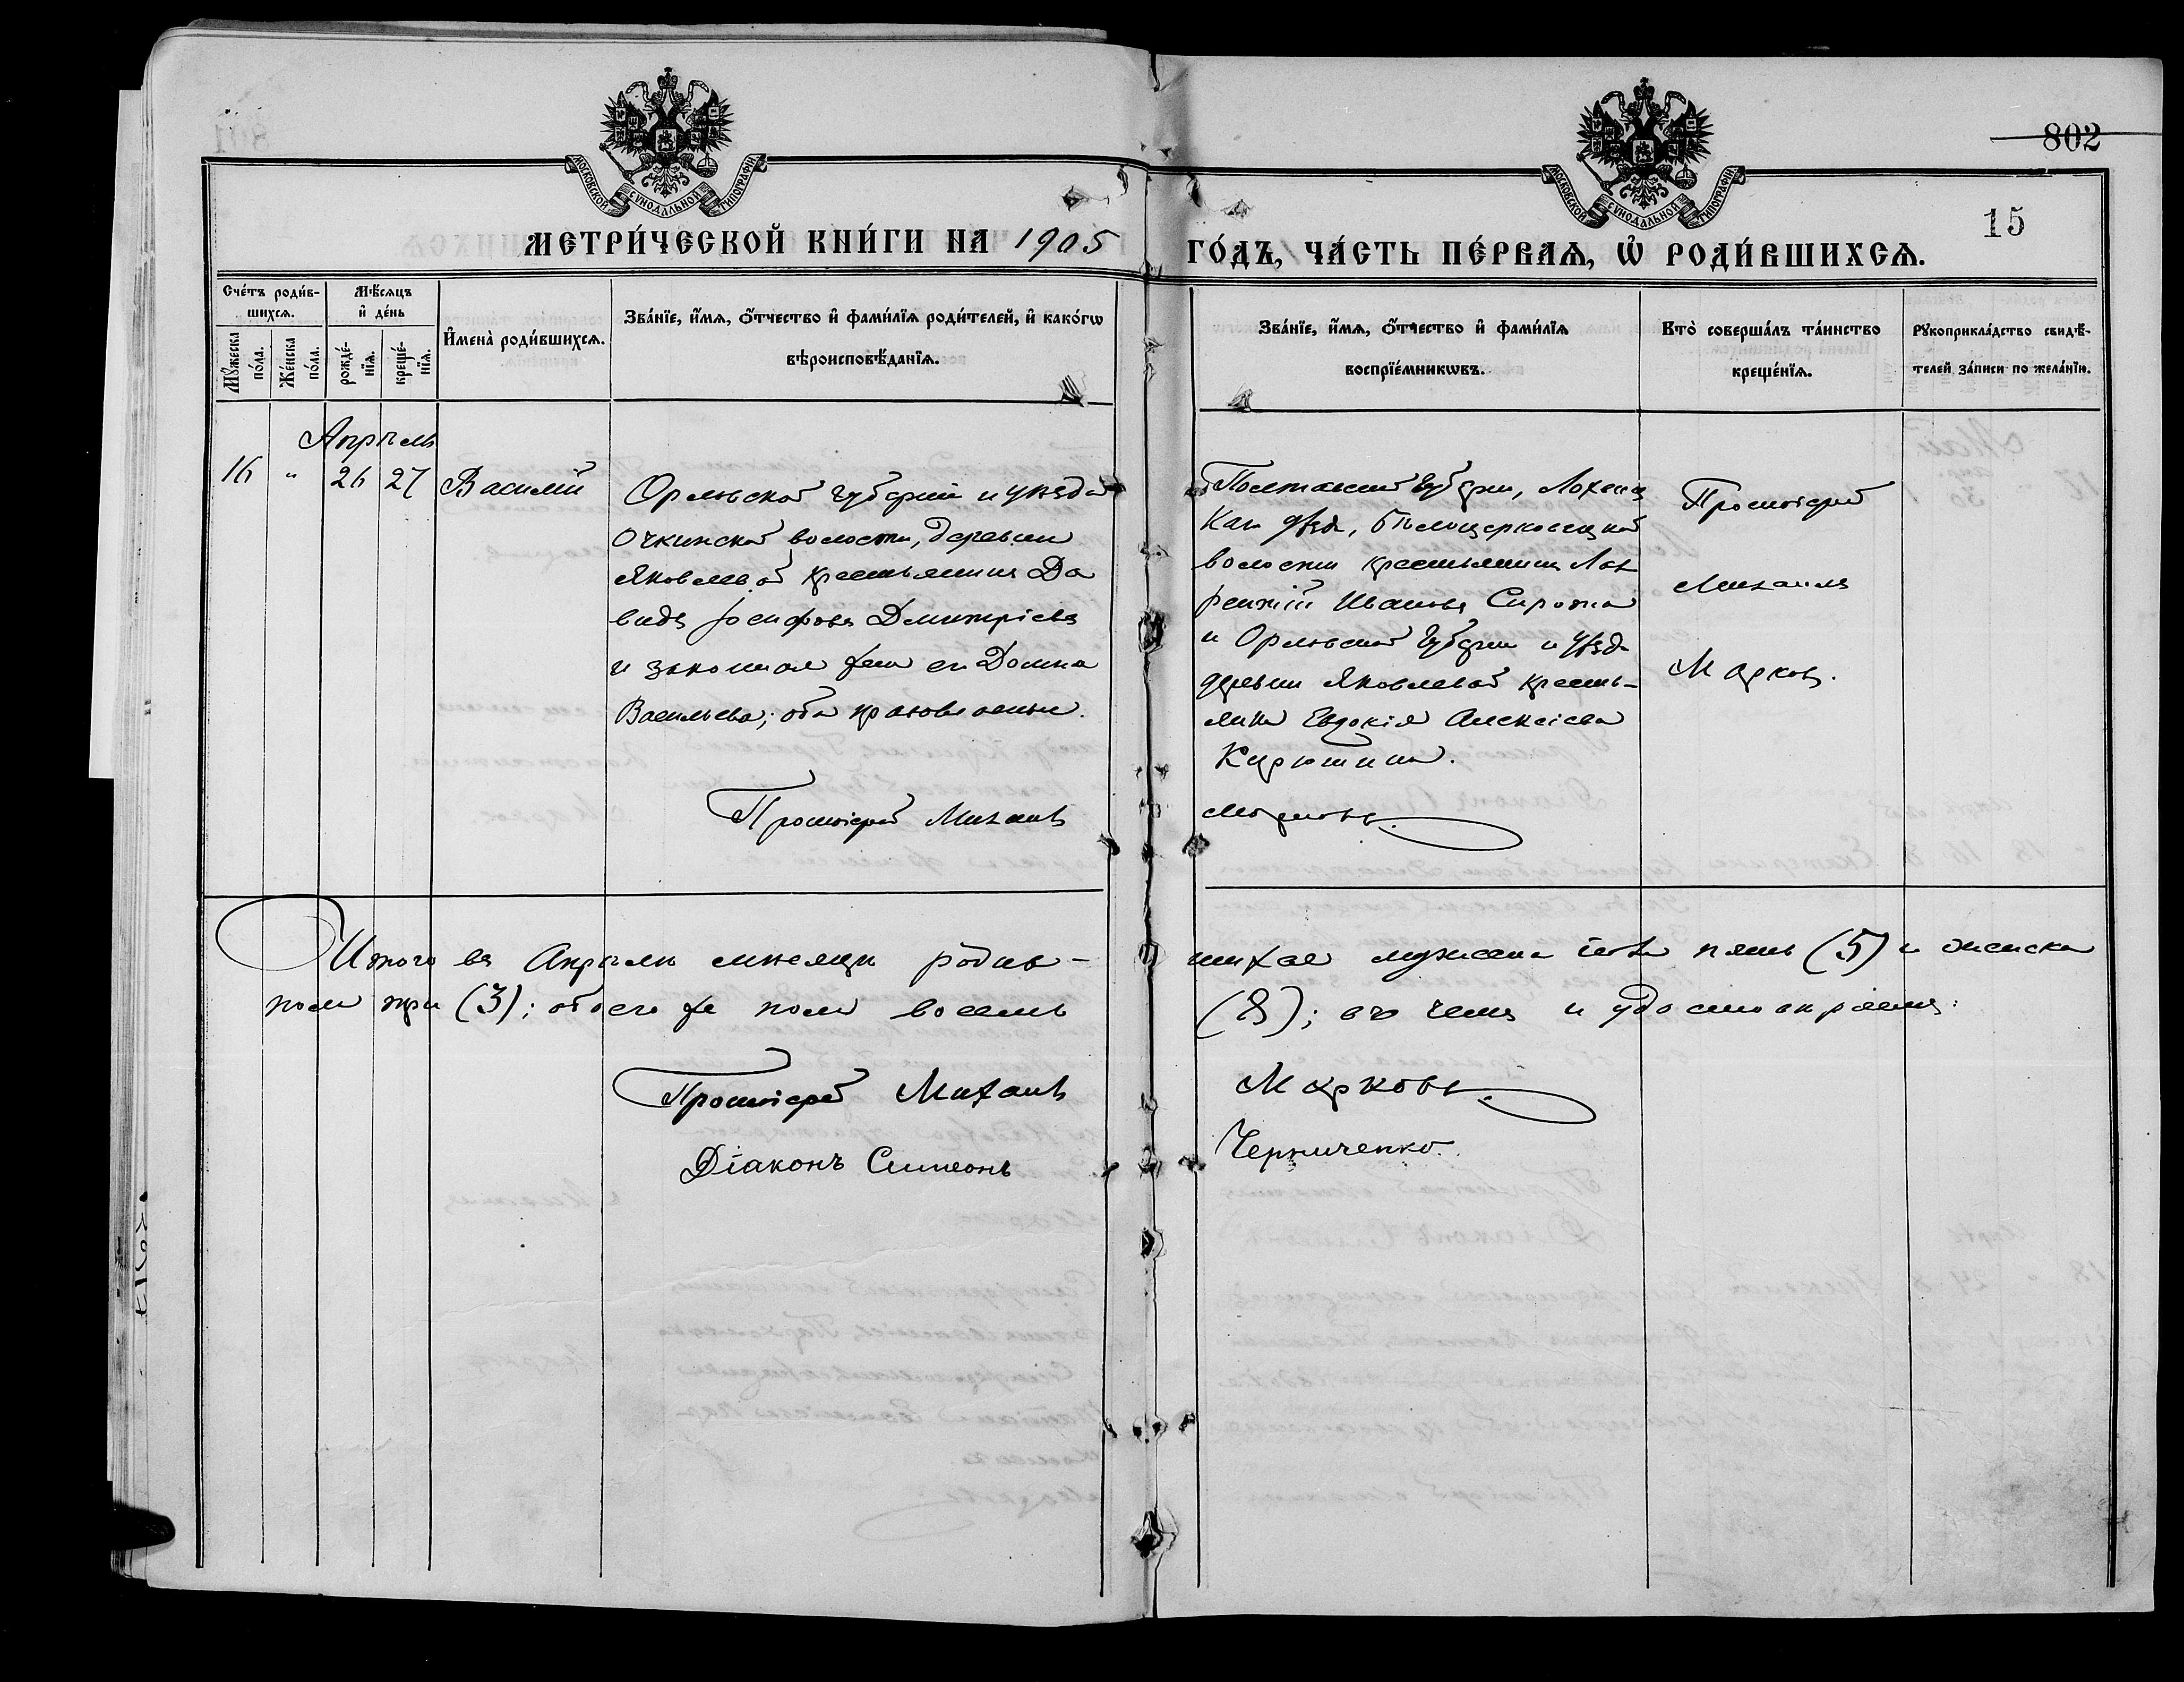 802
15
МОСКОВСКОЙ СѴНОДАЛЬНОЙ ТИПОГРАФІИ
МОСКОВСКОЙ СѴНОДАЛЬНОЙ ТИПОГРАФІИ
МЕТРИ́ЧЕСКОЙ КНИ́ГИ НА 1905 ГО́ДЪ, ЧА́СТЬ ПЕ́РВАѦ, Ѡ҆ РОДИ́ВШИХСѦ.
Сче́тъ роди́в-
шихсѧ.
Мꙋ́жеска по́ла.
Же́нска по́ла.
Мѣ́сѧцъ
и҆ де́нь
рожде́-
нїѧ.
креще́-
нїѧ.
И҆мена̀ роди́вшихсѧ.
Зва́нїе, и҆́мѧ, ѻ҆́тчество и҆ фами́лїѧ роди́телей, и҆ како́гѡ
вѣроисповѣ́данїѧ.
Зва́нїе, и҆́мѧ, ѻ҆́тчество и҆ фами́лїѧ
воспрїе́мникѡвъ.
Кто̀ соверша́лъ та́инство
креще́нїѧ.
Рꙋкоприкла́дство свидѣ́-
телей за́писи по жела́нїю.
Апрѣль
16 " 26 27 Василій
Орловской губерніи и уѣзда
Очкинской волости, деревни
Яковлевой крестьянинъ Да
видъ Іосифовъ Димитріевъ
и законная жена его Домна
Васильева; оба православные.
Протоіерей Михаилъ
Полтавской губерніи, Лохвиц
каго уѣзда, Бѣлоцерковецкой
волости крестьянинъ Лав
рентій Ивановъ Сирота
и Орловской губерніи и уѣзда
деревни Яковлевой кресть-
янка Евдокія Алексіева
Кирюшина.
Марковъ.
Протоіерей
Михаилъ
Марковъ.
Итого въ Апрѣлѣ мѣсяцѣ родив-
шихся мужеска пола пять (5) и женска
пола три (3); обоего же пола восемь
(8); въ чемъ и удостовѣряемъ:
Протоіерей Михаилъ
Марковъ.
Діаконъ Симеонъ
Черниченко.